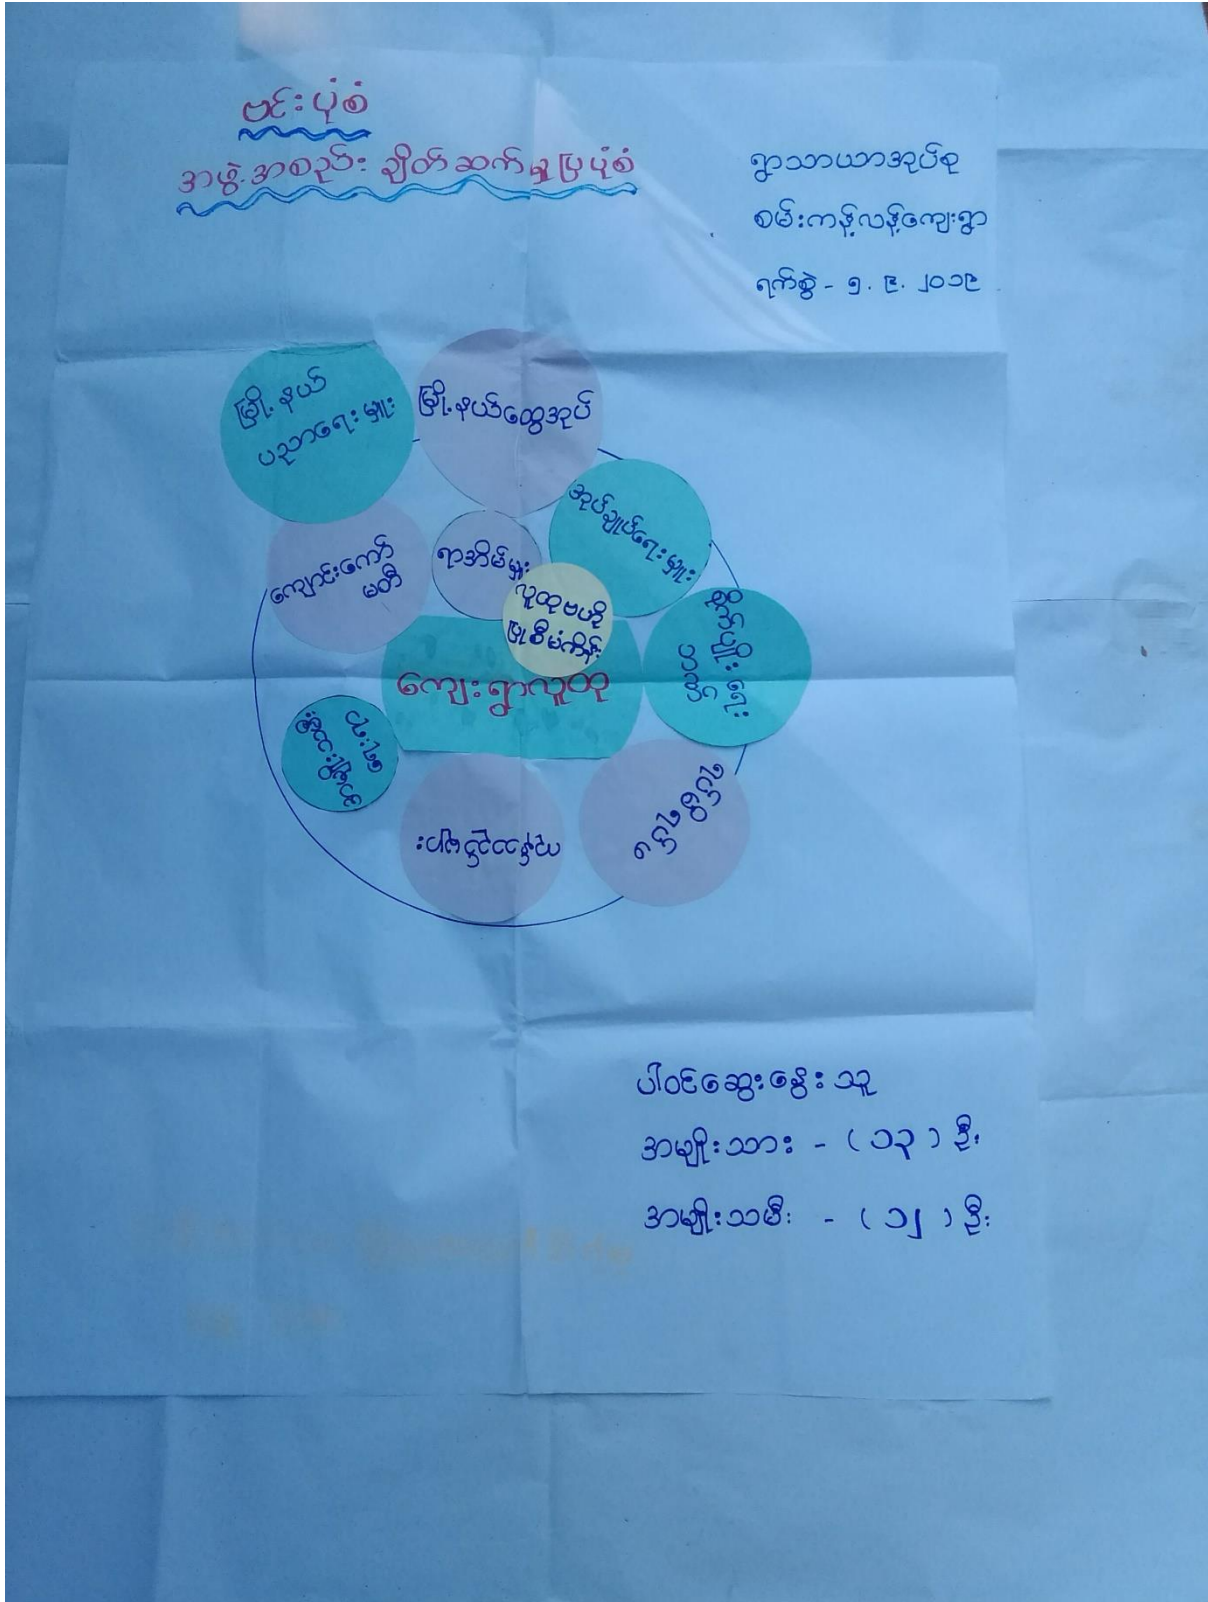 ဗင်းပုံစံ
အဖွဲ့အစည်း ချိတ်ဆက်မှုပြပုံစံ
ရွာသာယာအုပ်စု
စမ်းကန့်လန့်ကျေးရွာ
ရက်စွဲ - ၅. ၉. ၂၀၁၉
မြို့နယ်
ပညာရေးမှူး
မြို့နယ်ထွေအုပ်
အုပ်ချုပ်ရေးမှူး
ကျောင်းကော်
မတီ
ရာအိမ်မှူး
လူထုဗဟို
ပြုစီမံကိန်း
ကျေးရွာလူထု
ပါဝင်ဆွေးနွေးသူ
အမျိုးသား - (၁၃) ဦး
အမျိုးသမီး - (၁၂) ဦး